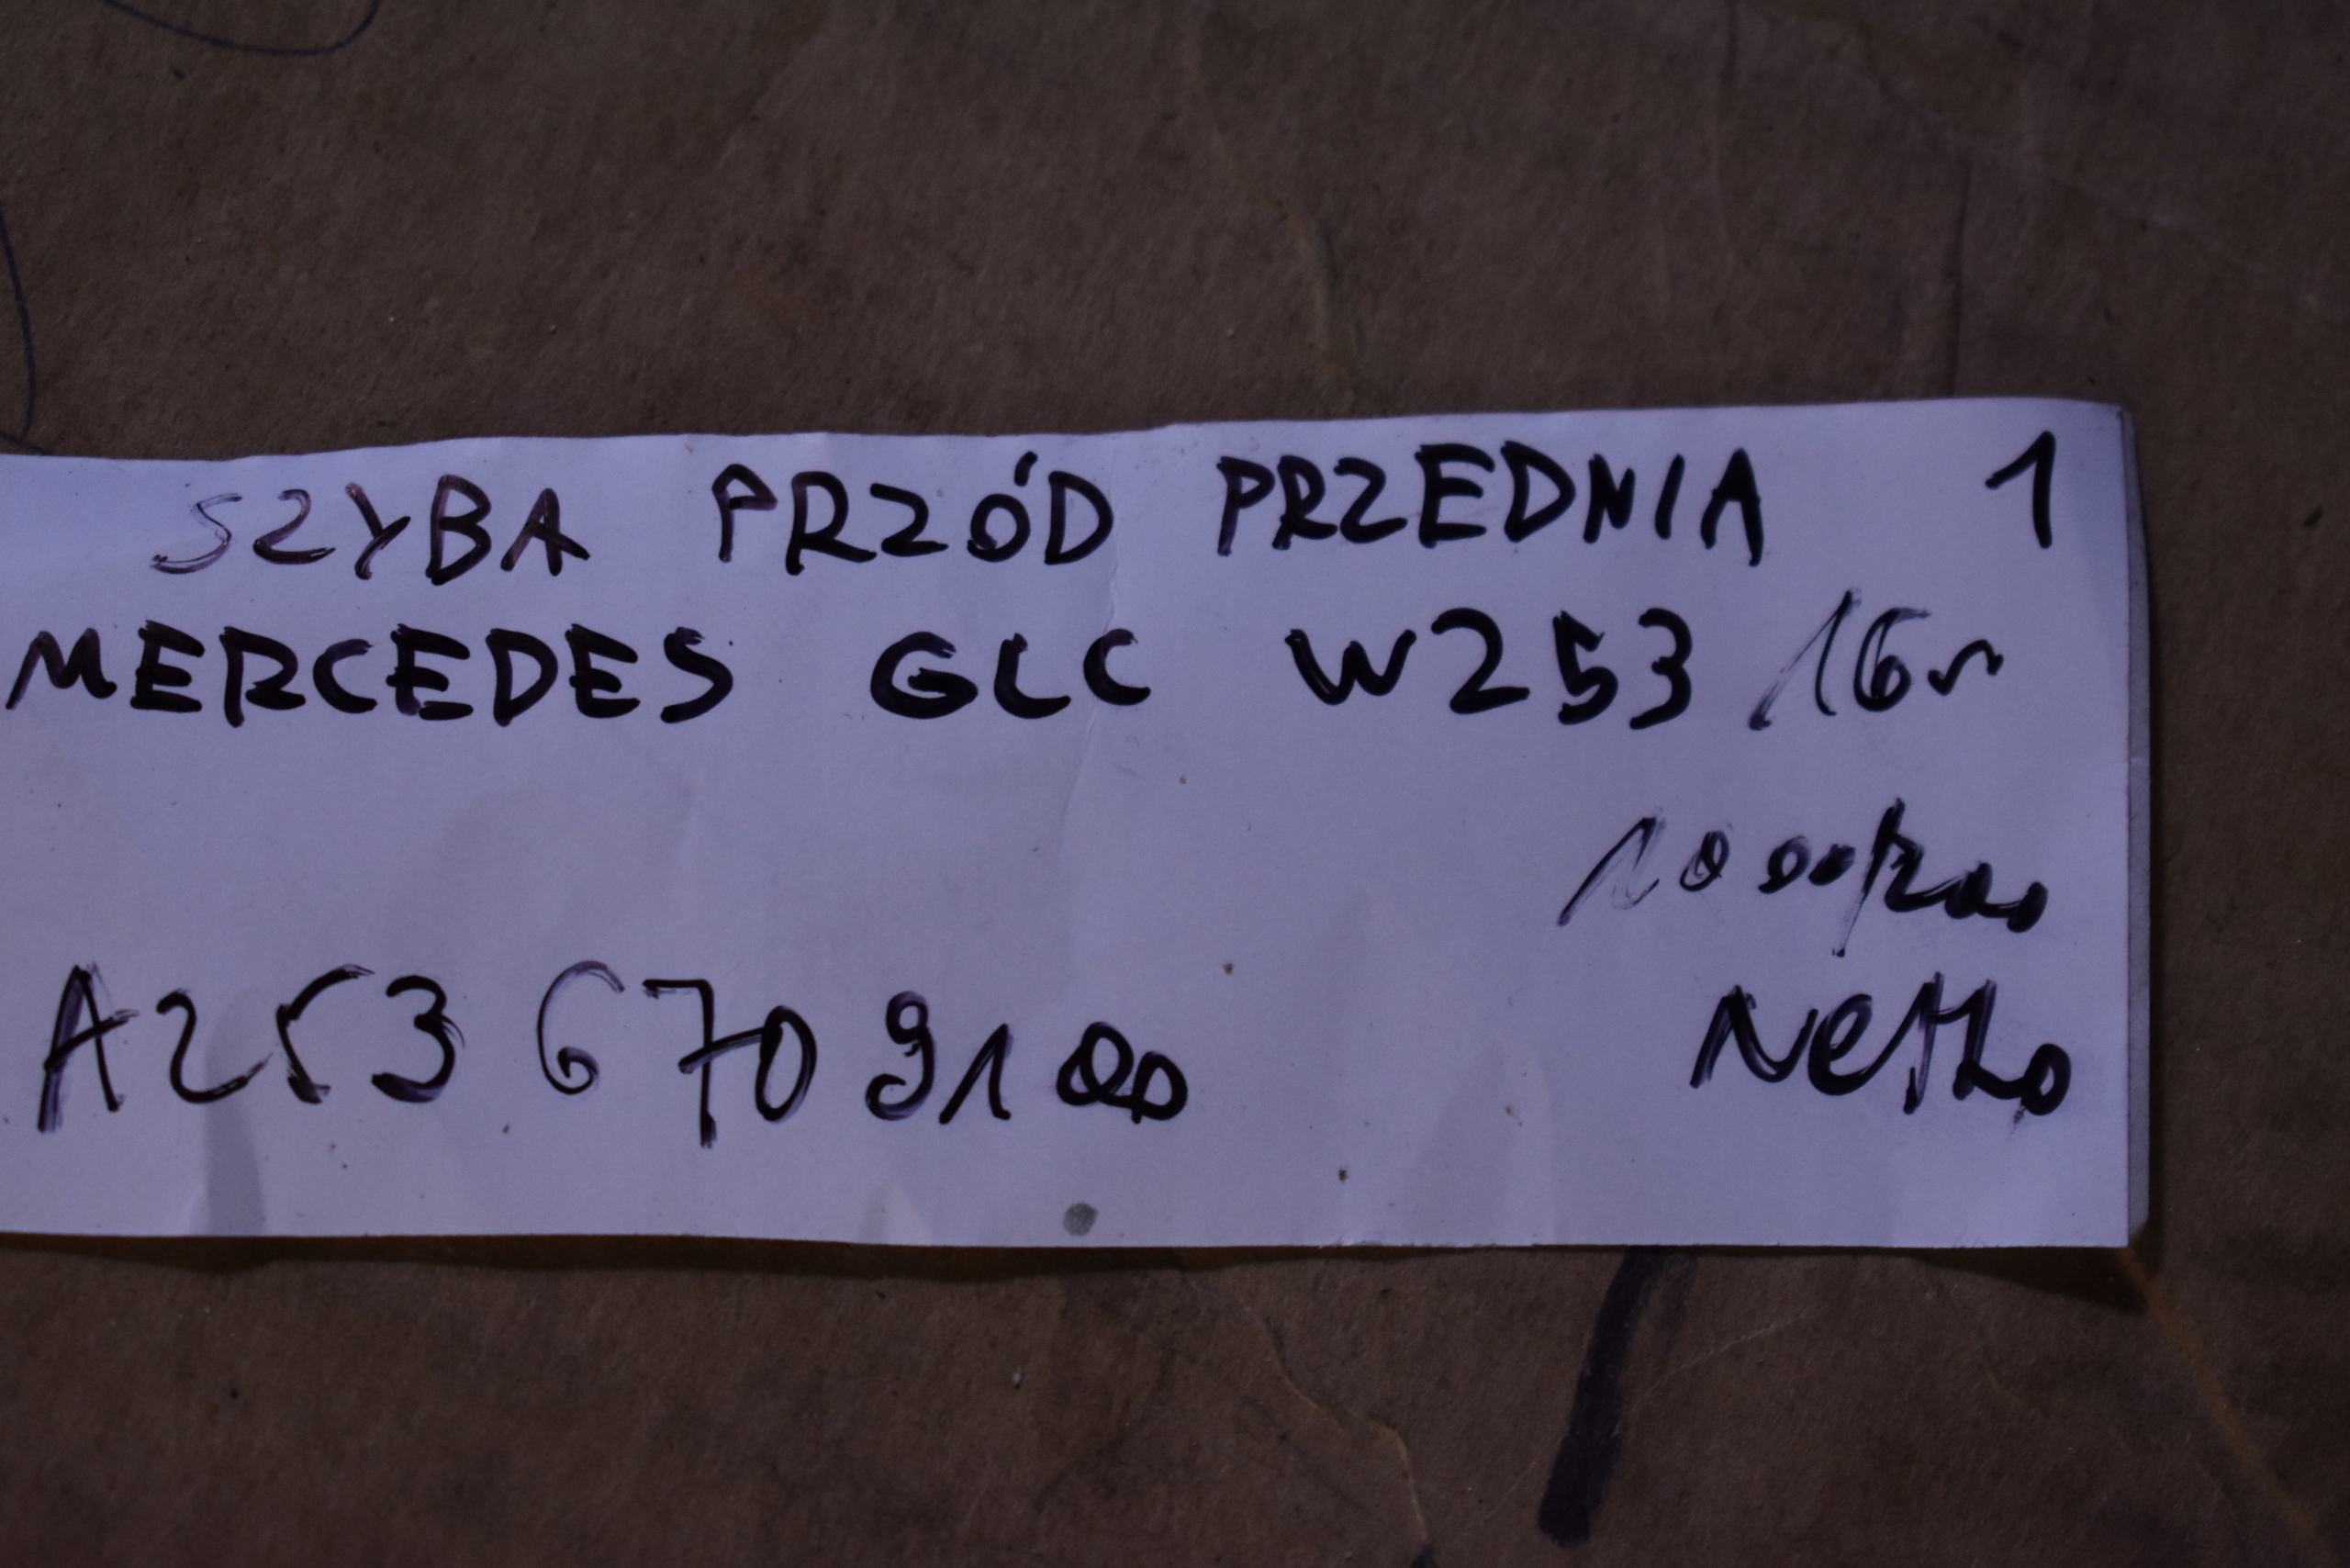 SZYBA PRZÓD PRZEDNIA 1
MERCEDES GLC W253 16r
A253 670 91 00
Netto